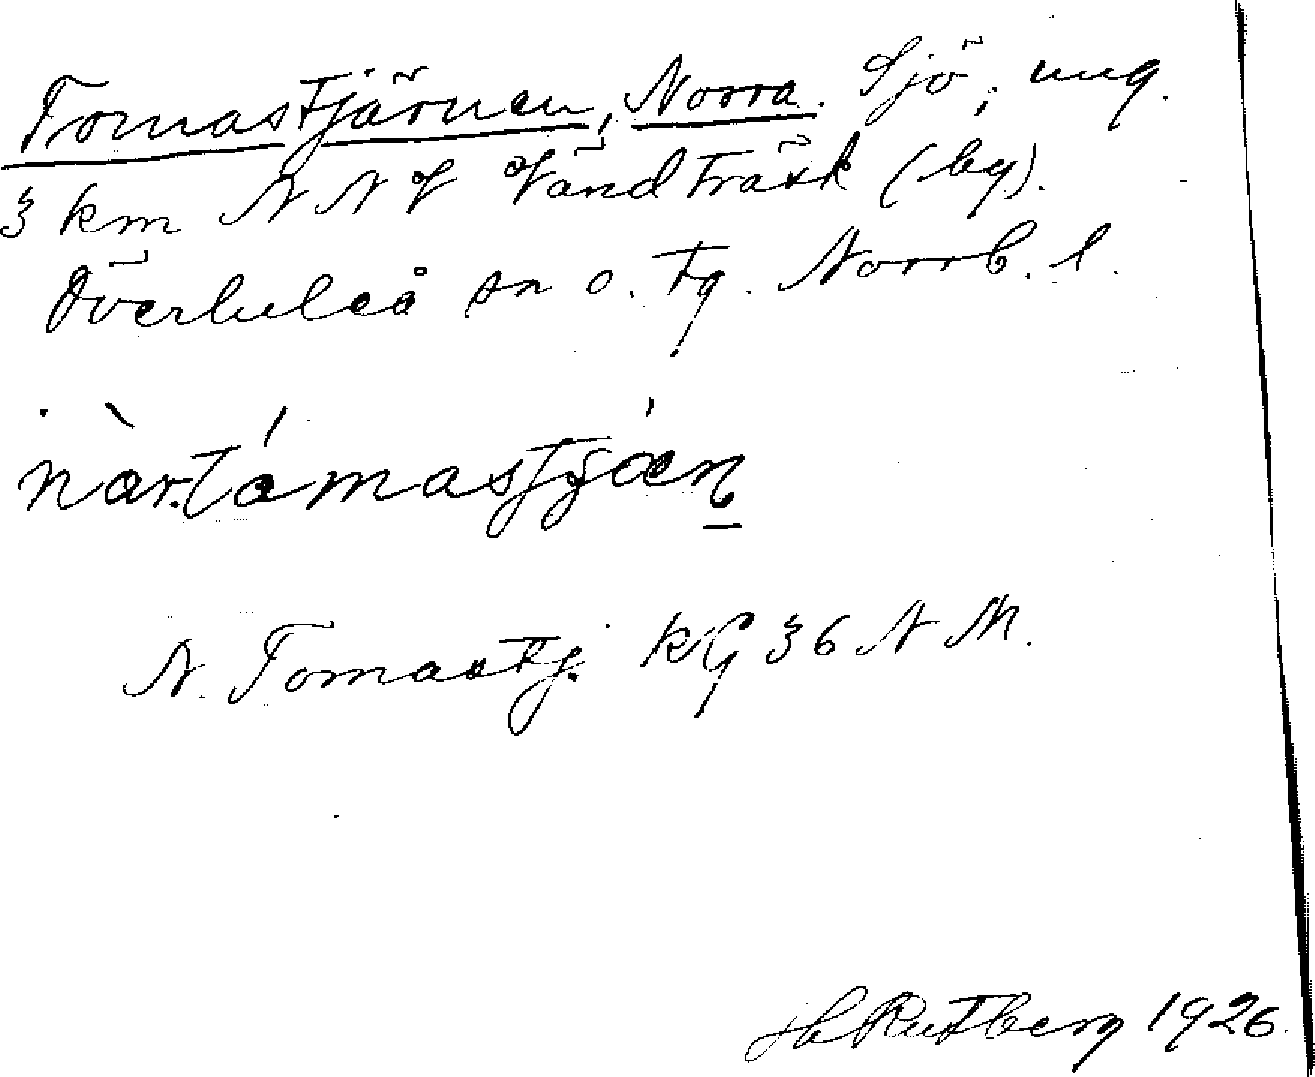 Tomastjärnen, Norra. Sjö, ung.
3 km NNV Vändträsk (by).
Överluleå sn o. tg. Norrb. l.
nòr.támastjæṇ
N. Tomastj. KG 36 NM.
H Rutberg 1926.